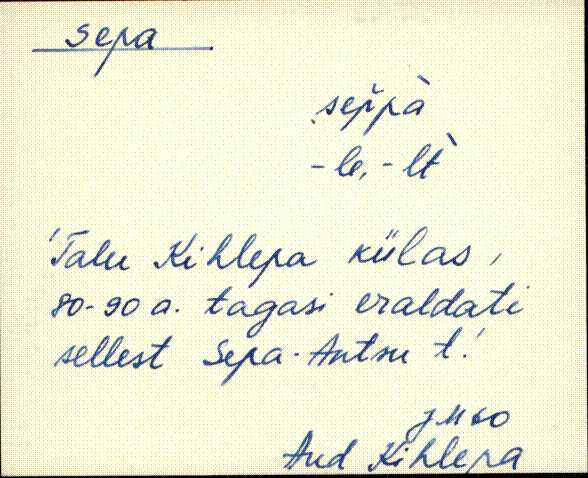 Sepa
sep̆pà
-le, -lt̀
'Talu Kihlepa külas,
80-90 a. tagasi eraldati
sellest Sepa-Antsu t.'
Aud Kihlepa